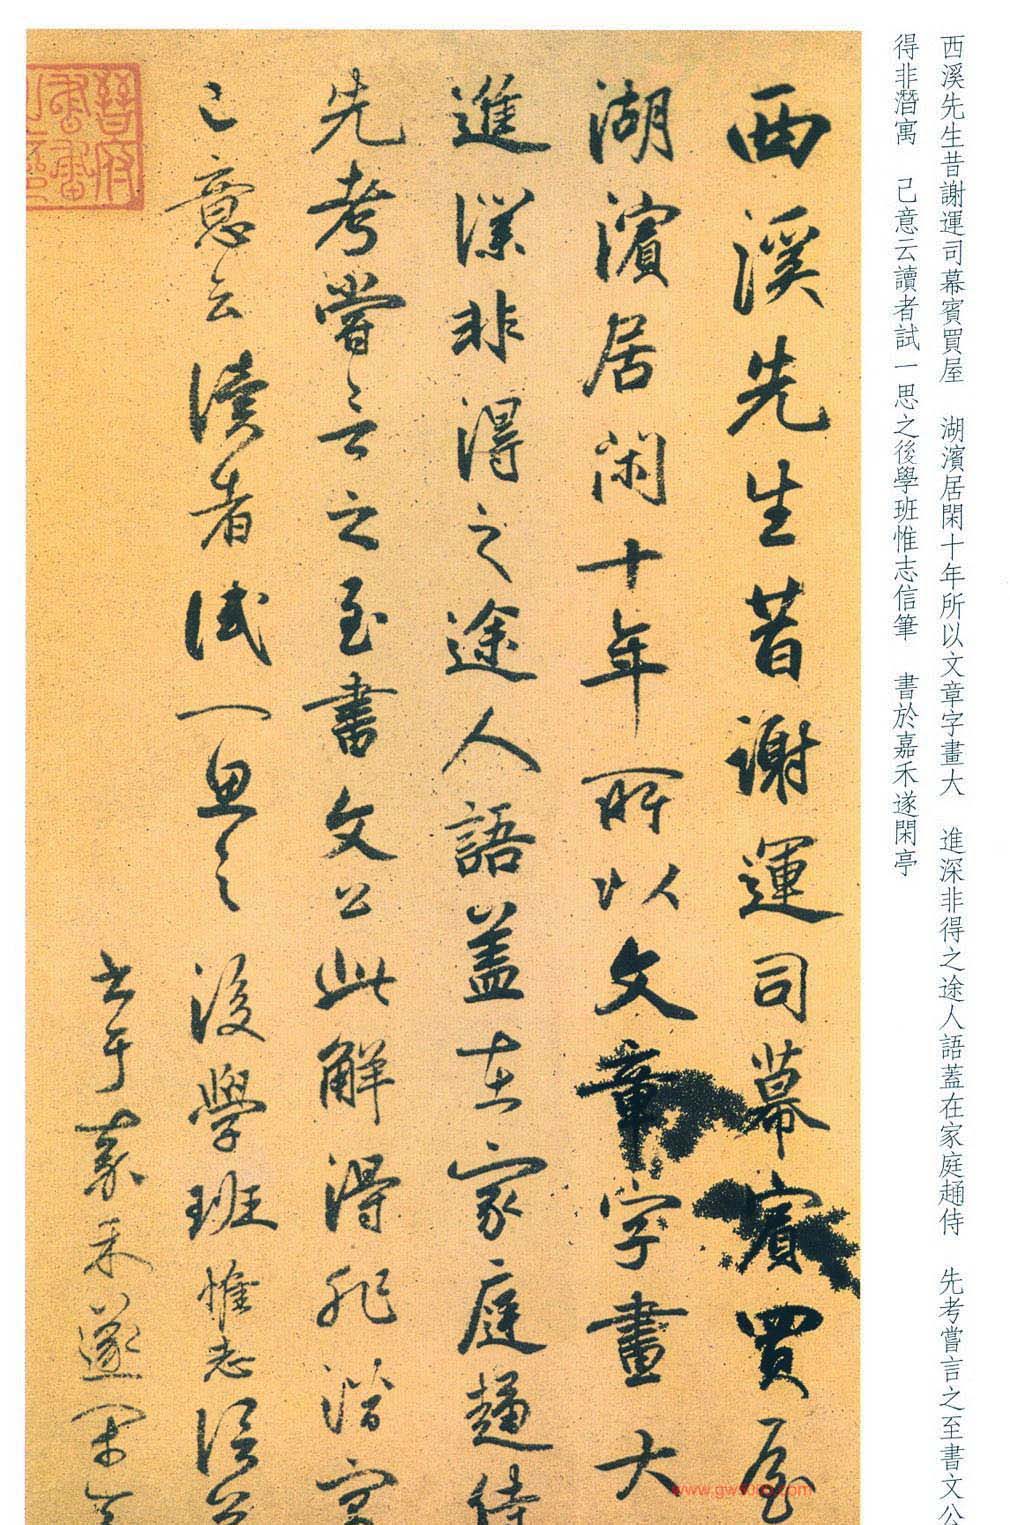 西溪先生昔謝運司幕賓買屋　湖濱居閑十年所以文章字畫大　進深非得之途人語蓋在家庭趨侍　先考嘗言之至書文公
得非潛寓　己意云讀者試一思之後學班惟志信筆　書於嘉禾遂閑亭
西溪先生昔謝運司幕賓買屋
湖濱居閑十年所以文章字畫大
進深非得之途人語蓋在家庭趨侍
先考嘗言之至書文公此解得非潛寓
己意云讀者試一思之後學班惟志信筆
書于嘉禾遂閑亭
晉府書畫